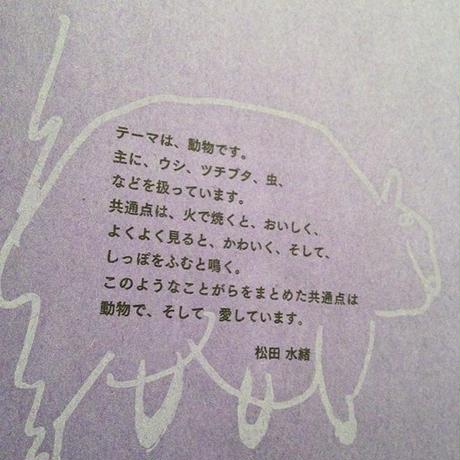 テーマは、動物です。
主に、ウシ、ツチブタ、虫、
などを扱っています。
共通点は、火で焼くと、おいしく、
よくよく見ると、かわいく、そして、
しっぽをふむと鳴く。
このようなことがらをまとめた共通点は
動物で、そして　愛しています。
松田 水緒